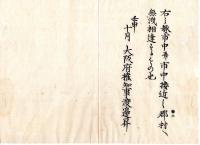 右之趣市中并市中接近之郡村へ
無洩相達するもの也
壬申
十月 大阪府権知事渡邊昇